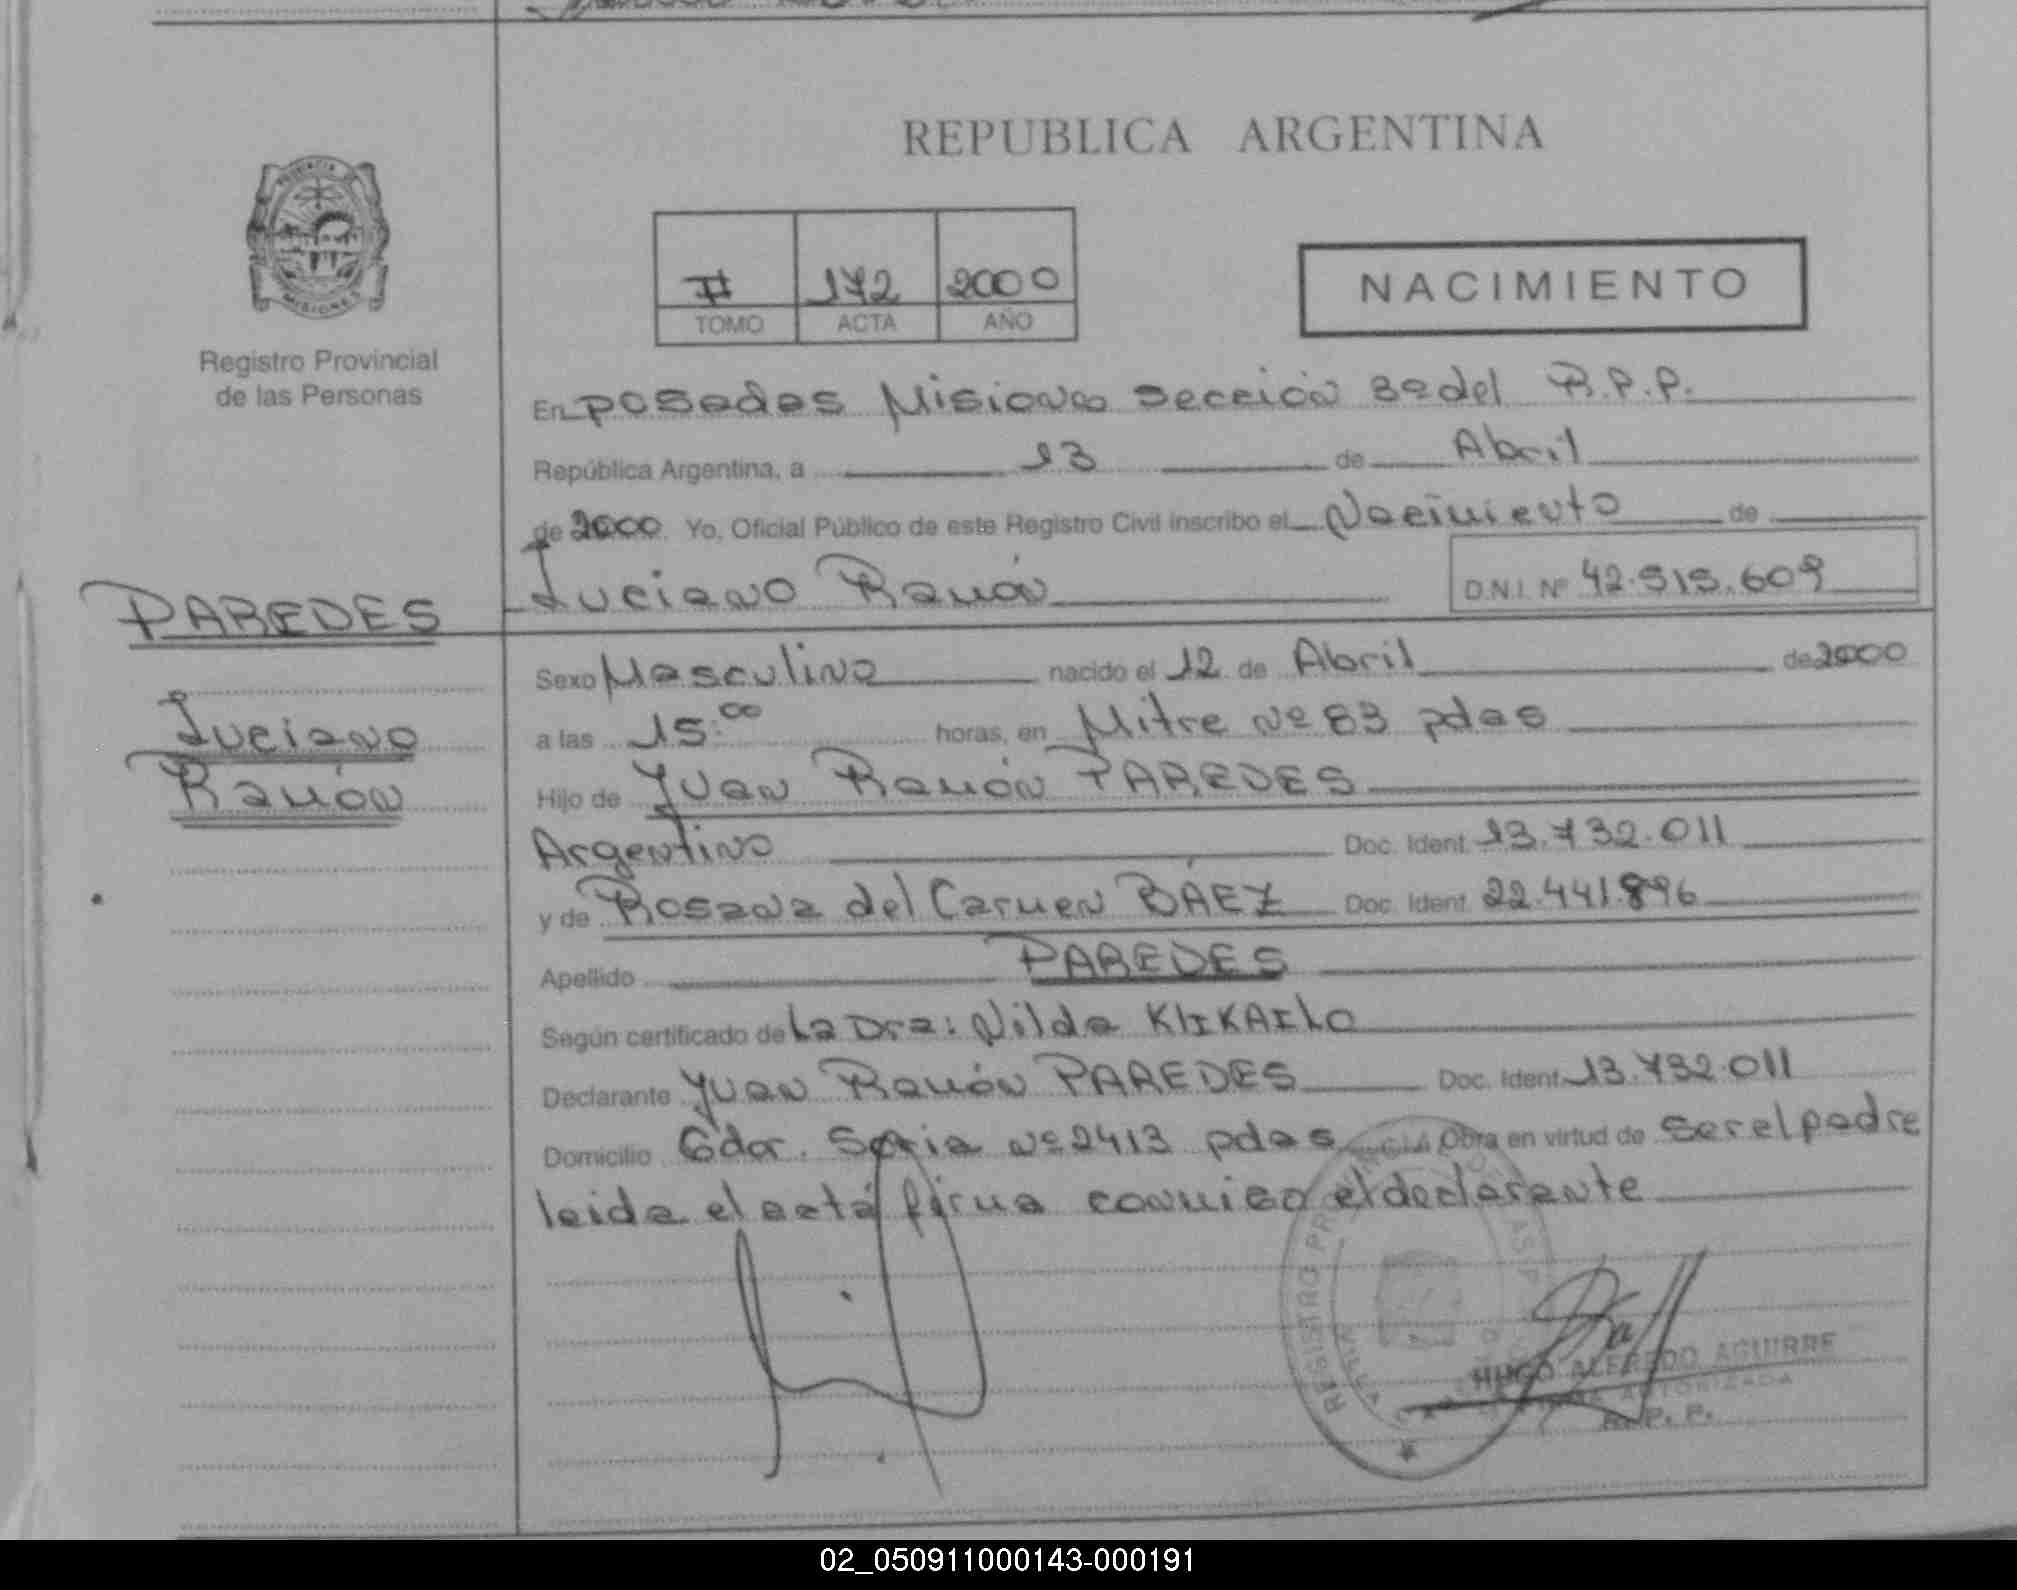 REPUBLICA ARGENTINA
PROVINCIA
MISIONES
Registro Provincial
de las Personas
172 2000
TOMO ACTA AÑO
NACIMIENTO
En Posadas Misiones Sección 3º del R.P.P.
República Argentina, a 13 de Abril
de 2000 Yo, Oficial Público de este Registro Civil inscribo el Nacimiento de
Luciano Ramón D.N.I. Nº 42.515.609
PAREDES
Luciano
Ramón
Sexo Masculino nacido el 12 de Abril de 2000
a las 15:00 horas, en Mitre Nº 83 pdas
Hijo de Juan Ramón PAREDES
Argentino Doc. Ident. 13.732.011
y de Rosana del Carmen BÁEZ Doc. Ident. 22.441.896
Apellido PAREDES
Según certificado de La Dra: Nilda
Declarante Juan Ramón PAREDES Doc. Ident. 13.732.011
Domicilio Gdor. Soria Nº 2413 pdas Obra en virtud de ser el padre
leida el acta firma conmigo el declarante
REGISTRO
HUGO ALFREDO AGUIRRE
AUTORIZADA
R. P. P.
02_050911000143-000191